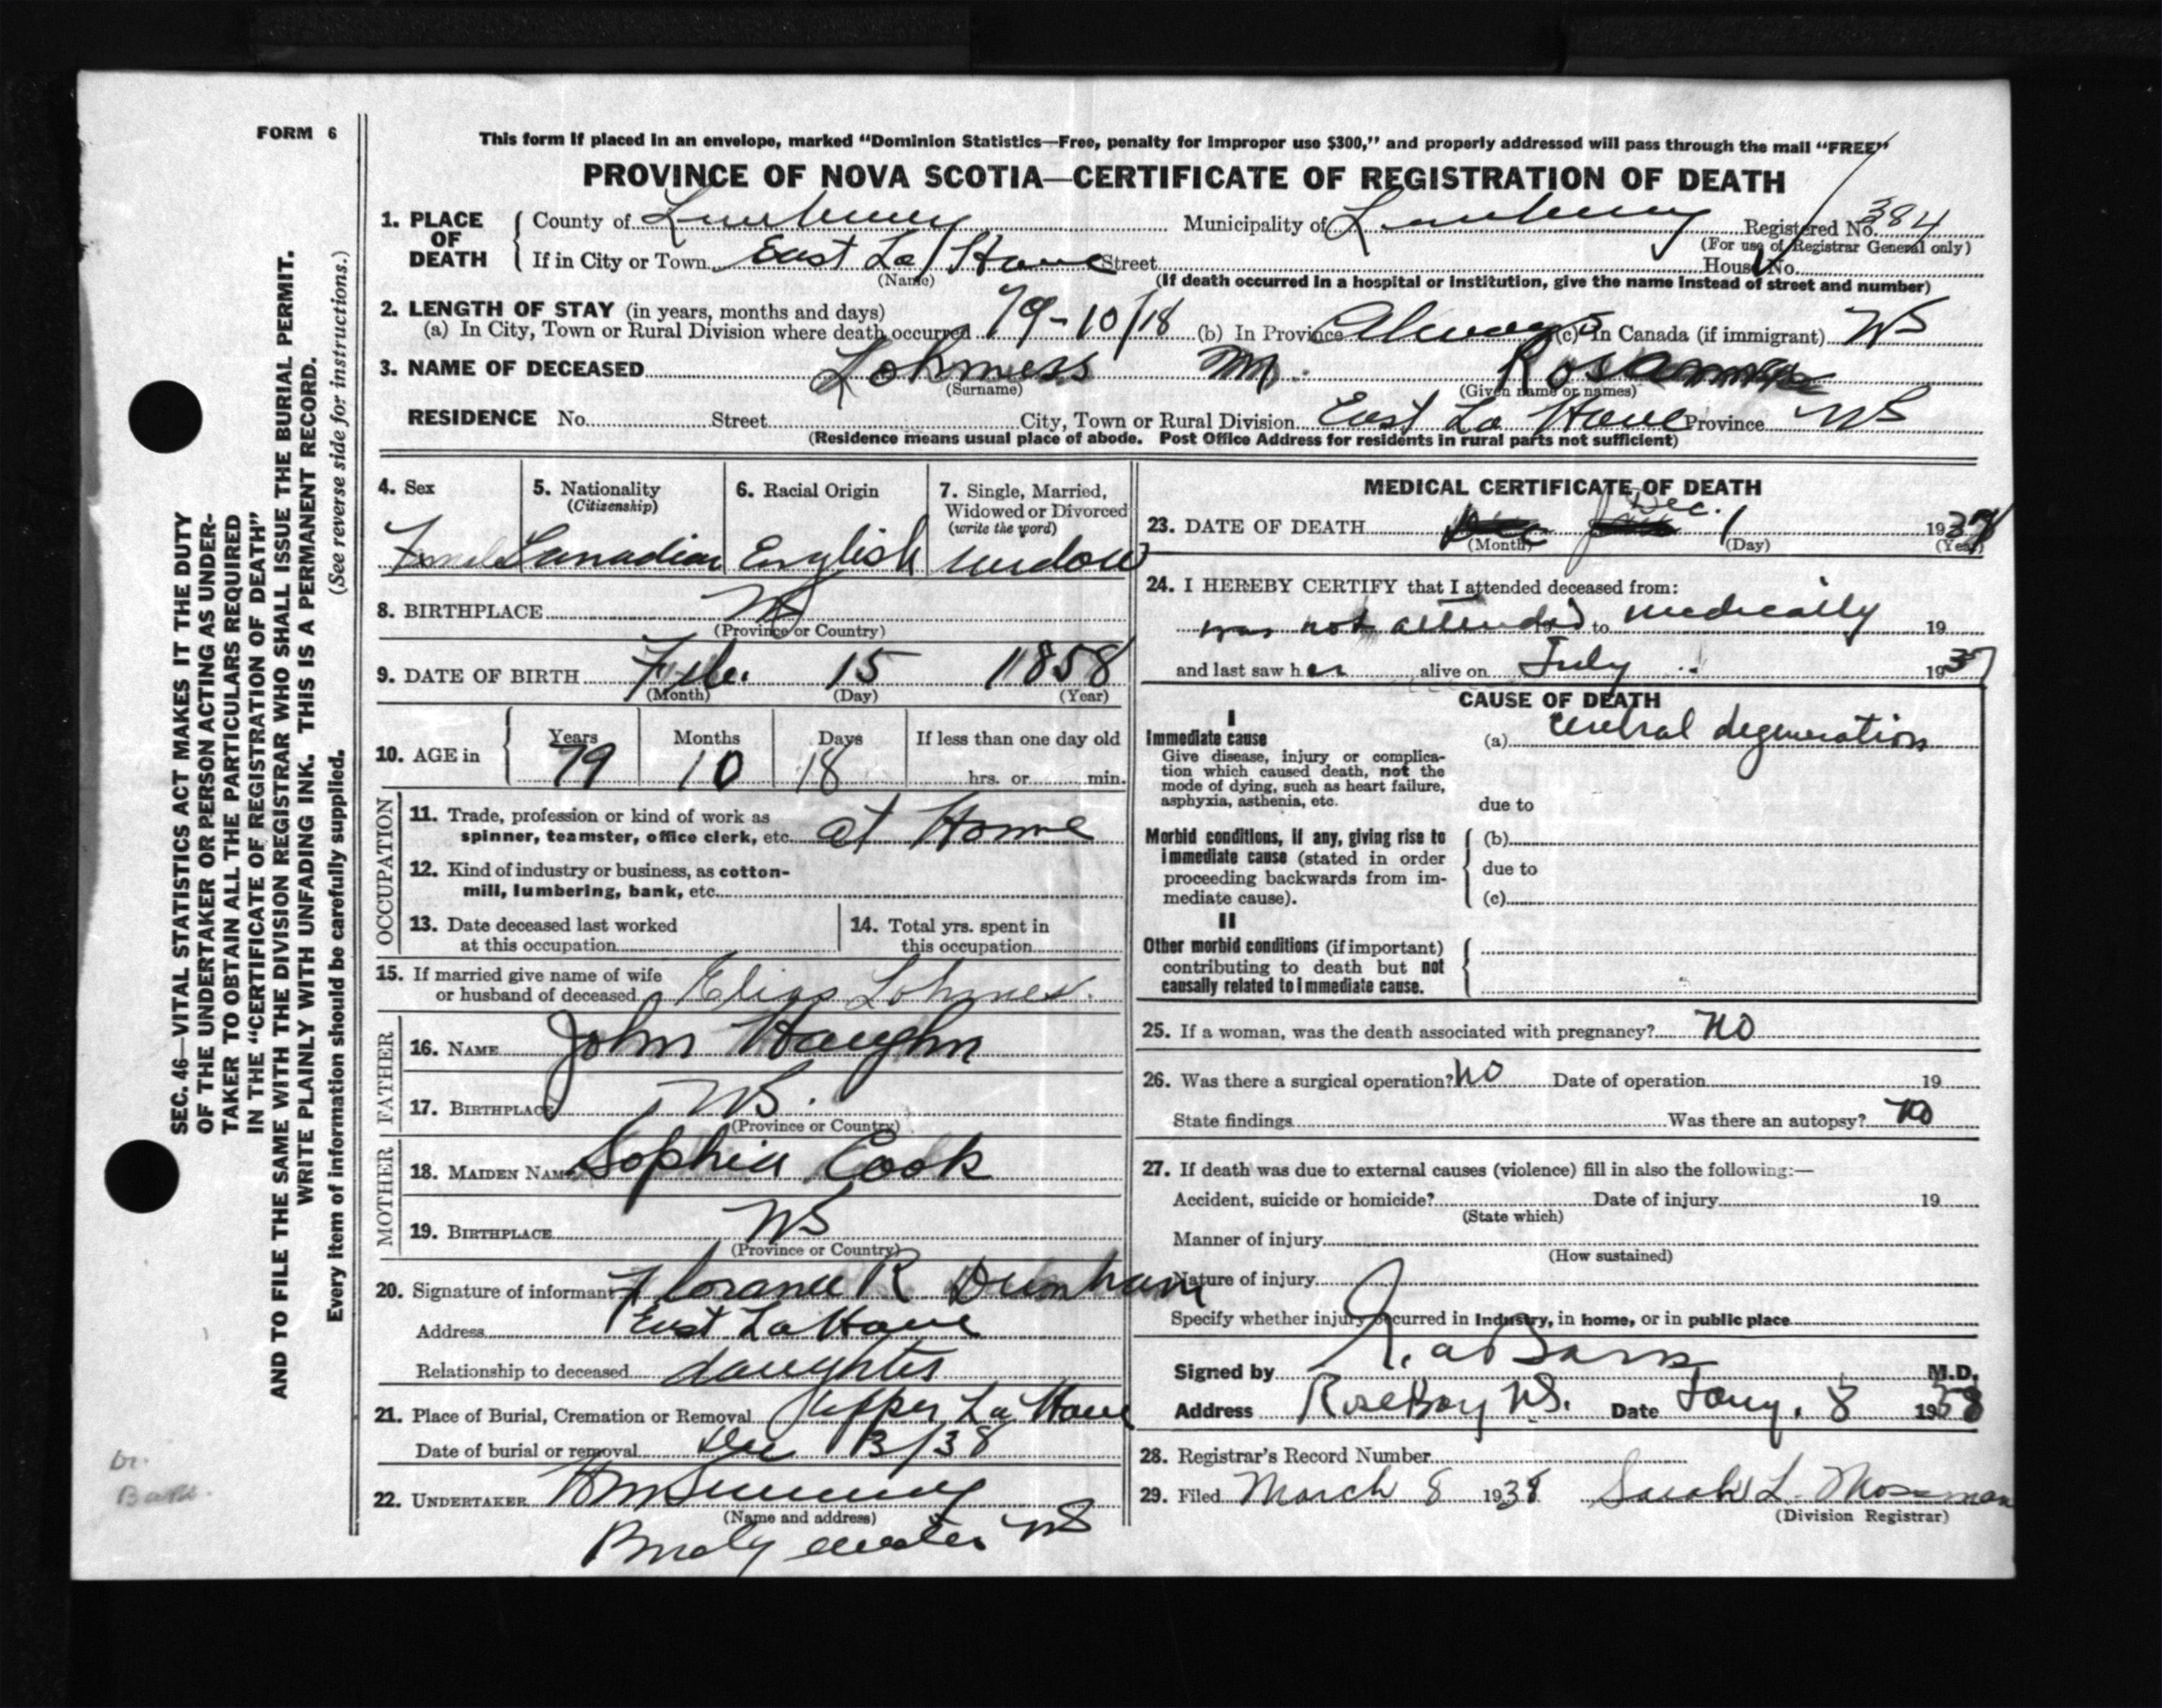 FORM 6
This form if placed in an envelope, marked “Dominion Statistics—Free, penalty for improper use $300,” and properly addressed will pass through the mail “FREE”
PROVINCE OF NOVA SCOTIA—CERTIFICATE OF REGISTRATION OF DEATH
1. PLACE OF DEATH { County of Lunenburg Municipality of Lunenburg Registered No. 384
(For use of Registrar General only)
If in City or Town East La Have Street House No.
(Name) (If death occurred in a hospital or institution, give the name instead of street and number)
2. LENGTH OF STAY (in years, months and days)
(a) In City, Town or Rural Division where death occurred 79-10/18 (b) In Province Always (c) In Canada (if immigrant) NS
3. NAME OF DECEASED Lohness M. Rosanna
(Surname) (Given name or names)
RESIDENCE No. Street City, Town or Rural Division East La Have Province NS
(Residence means usual place of abode. Post Office Address for residents in rural parts not sufficient)
4. Sex 5. Nationality (Citizenship) 6. Racial Origin 7. Single, Married, Widowed or Divorced (write the word)
Female Canadian English widow
8. BIRTHPLACE NS
(Province or Country)
9. DATE OF BIRTH Feb. 15 1858
(Month) (Day) (Year)
10. AGE in { Years Months Days If less than one day old
79 10 18 hrs. or min.
OCCUPATION
11. Trade, profession or kind of work as
spinner, teamster, office clerk, etc. at Home
12. Kind of industry or business, as cotton-
mill, lumbering, bank, etc.
13. Date deceased last worked
at this occupation
14. Total yrs. spent in
this occupation
15. If married give name of wife
or husband of deceased Elias Lohnes.
FATHER
16. NAME John Haughn
17. BIRTHPLACE NS.
(Province or Country)
MOTHER
18. MAIDEN NAME Sophia Cook
19. BIRTHPLACE NS
(Province or Country)
20. Signature of informant Florance R Dunham
Address East La Have
Relationship to deceased daughter
21. Place of Burial, Cremation or Removal Upper La Have
Date of burial or removal Dec 13/38
22. UNDERTAKER
(Name and address)
NS
MEDICAL CERTIFICATE OF DEATH
23. DATE OF DEATH Dec. 1 1937
(Month) (Day) (Year)
24. I HEREBY CERTIFY that I attended deceased from:
was not attended to medically 19
and last saw her alive on July 1937
CAUSE OF DEATH
I
Immediate cause
Give disease, injury or complica-
tion which caused death, not the
mode of dying, such as heart failure,
asphyxia, asthenia, etc.
(a) cerebral degeneration
due to
Morbid conditions, if any, giving rise to
immediate cause (stated in order
proceeding backwards from im-
mediate cause).
(b)
due to
(c)
II
Other morbid conditions (if important)
contributing to death but not
causally related to immediate cause.
25. If a woman, was the death associated with pregnancy? no
26. Was there a surgical operation? no Date of operation 19
State findings Was there an autopsy? no
27. If death was due to external causes (violence) fill in also the following:—
Accident, suicide or homicide? Date of injury 19
(State which)
Manner of injury
(How sustained)
Nature of injury
Specify whether injury occurred in industry, in home, or in public place
Signed by M.D.
Address Rose Bay NS. Date Jany. 8 1938
28. Registrar's Record Number
29. Filed March 8 1938 Sarah L. Mossman
(Division Registrar)
SEC. 46—VITAL STATISTICS ACT MAKES IT THE DUTY
OF THE UNDERTAKER OR PERSON ACTING AS UNDER-
TAKER TO OBTAIN ALL THE PARTICULARS REQUIRED
IN THE “CERTIFICATE OF REGISTRATION OF DEATH”
AND TO FILE THE SAME WITH THE DIVISION REGISTRAR WHO SHALL ISSUE THE BURIAL PERMIT.
WRITE PLAINLY WITH UNFADING INK. THIS IS A PERMANENT RECORD.
Every item of information should be carefully supplied. (See reverse side for instructions.)
Dr.